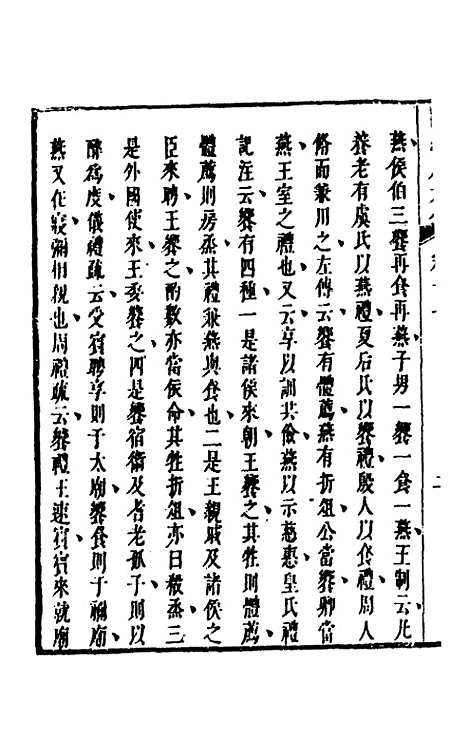 燕侯伯三饗再食再燕子男一饗一食一燕王制云凡
養老有虞氏以燕禮夏后氏以饗禮殷人以食禮周人
脩而兼用之左傳云饗有體薦燕有折俎公當饗卿當
燕王室之禮也又云享以訓共儉燕以示慈惠皇氏禮
記注云饗有四種一是諸侯來朝王饗之其牲則體薦
體薦則房烝其禮兼燕與食也二是王親戚及諸侯之
臣來聘王饗之酌數亦當侯命其牲折俎亦曰殽烝三
是外國使來王委饗之四是饗宿衛及耆老孤子則以
醉爲度儀禮疏云受賓聘享則于太廟饗食則于禰廟
燕又在寢彌相親也周禮疏云饗禮王速賓賓來就廟